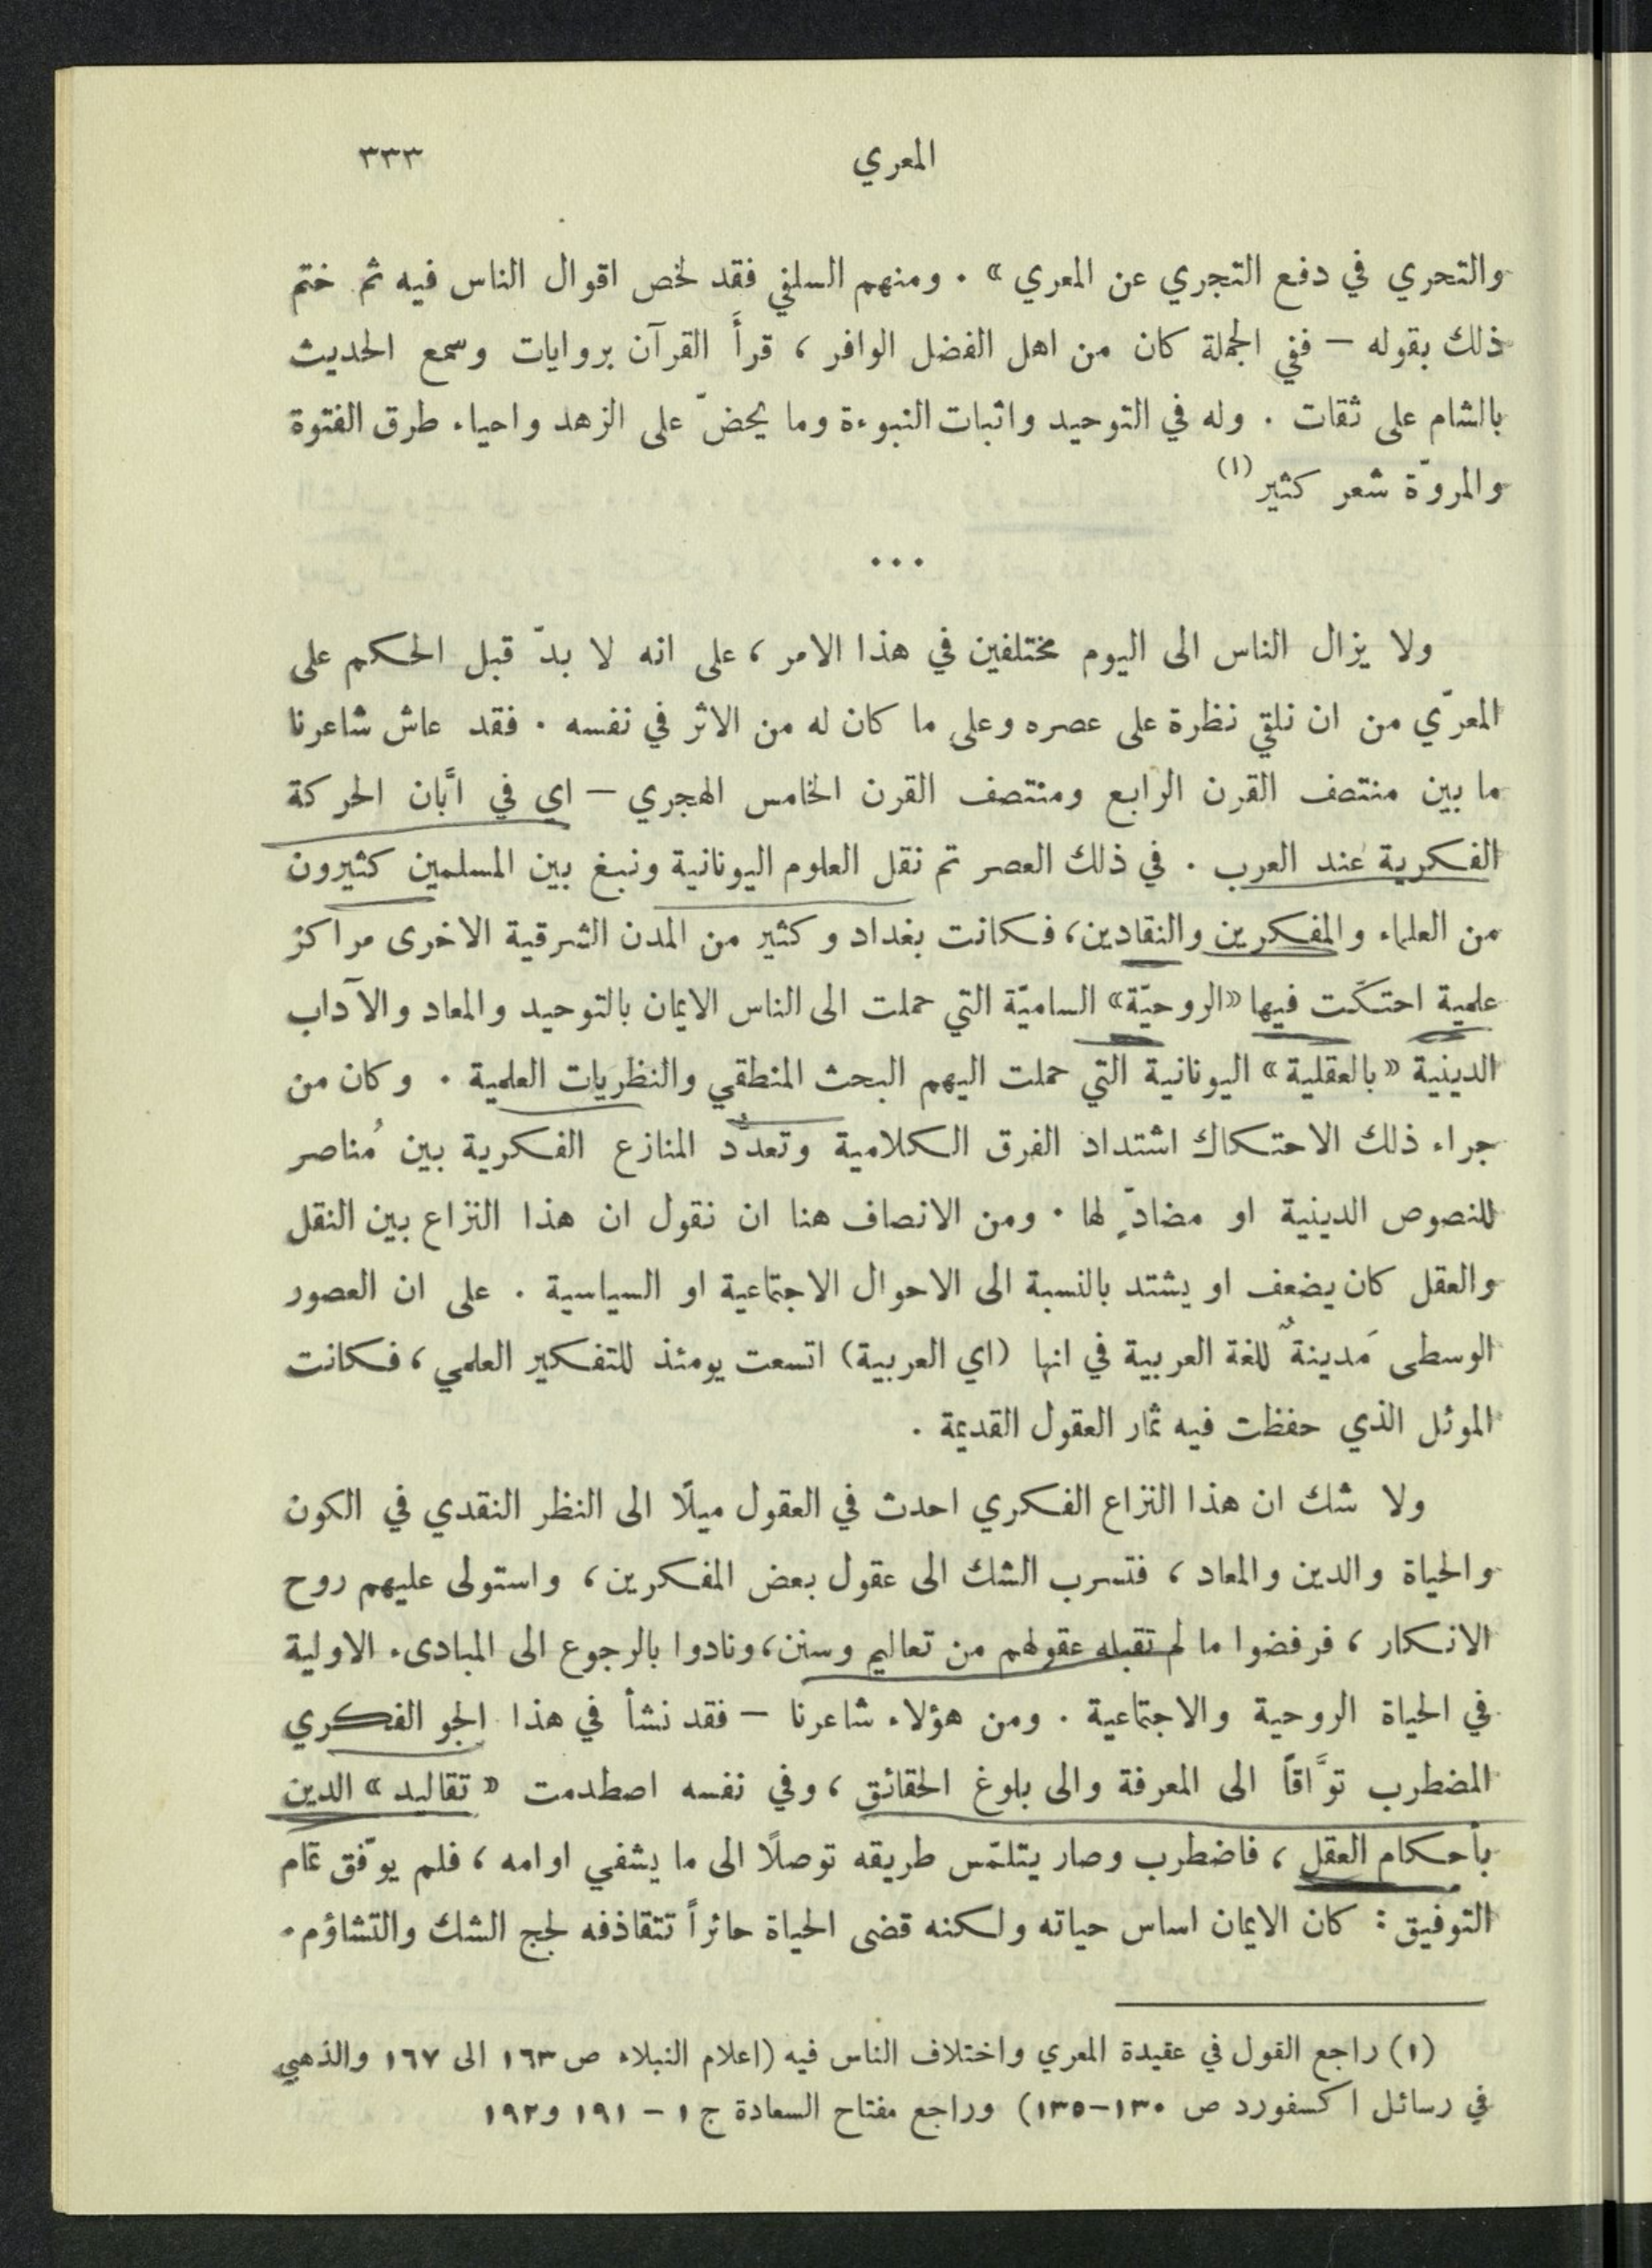 المعري ٣٣٣
والتحري في دفع التجري عن المعري» . ومنهم السلفي فقد لخص اقوال الناس فيه ثم ختم
ذلك بقوله – ففي الجملة كان من اهل الفضل الوافر ، قرأَ القرآن بروايات وسمع الحديث
بالشام على ثقات . وله في التوحيد واثبات النبوءة وما يحضّ على الزهد واحياء طرق الفتوة
والمروّة شعر كثير (١)
...
ولا يزال الناس الى اليوم مختلفين في هذا الامر ، على انه لا بدّ قبل الحكم على
المعرّي من ان نلقي نظرة على عصره وعلى ما كان له من الاثر في نفسه . فقد عاش شاعرنا
ما بين منتصف القرن الرابع ومنتصف القرن الخامس الهجري – اي في ابَّان الحركة
الفكرية عند العرب . في ذلك العصر تم نقل العلوم اليونانية ونبغ بين المسلمين كثيرون
من العلماء والمفكرين والنقادين، فكانت بغداد وكثير من المدن الشرقية الاخرى مراكز
علمية احتكّت فيها «الروحيّة» الساميّة التي حملت الى الناس الايمان بالتوحيد والمعاد والآداب
الدينية «بالعقلية» اليونانية التي حملت اليهم البحث المنطقي والنظريات العلمية . وكان من
جراء ذلك الاحتكاك اشتداد الفرق الكلامية وتعدُّد المنازع الفكرية بين مُناصر
للنصوص الدينية او مضادٍّ لها . ومن الانصاف هنا ان نقول ان هذا النزاع بين النقل
والعقل كان يضعف او يشتد بالنسبة الى الاحوال الاجتماعية او السياسية . على ان العصور
الوسطى مَدينةٌ للغة العربية في انها (اي العربية) اتسعت يومئذ للتفكير العلمي ، فكانت
الموئل الذي حفظت فيه ثمار العقول القديمة .
ولا شك ان هذا النزاع الفكري احدث في العقول ميلًا الى النظر النقدي في الكون
والحياة والدين والمعاد ، فتسرب الشك الى عقول بعض المفكرين ، واستولى عليهم روح
الانكار ، فرفضوا ما لم تقبله عقولهم من تعاليم وسنن، ونادوا بالرجوع الى المبادىء الاولية
في الحياة الروحية والاجتماعية . ومن هؤلاء شاعرنا – فقد نشأ في هذا الجو الفكري
المضطرب توَّاقاً الى المعرفة والى بلوغ الحقائق ، وفي نفسه اصطدمت «تقاليد» الدين
بأحكام العقل ، فاضطرب وصار يتلمّس طريقه توصلًا الى ما يشفي اوامه ، فلم يوفّق تمام
التوفيق : كان الايمان اساس حياته ولكنه قضى الحياة حائراً تتقاذفه لجج الشك والتشاؤم .
(١) راجع القول في عقيدة المعري واختلاف الناس فيه (اعلام النبلاء ص ١٦٣ الى ١٦٧ والذهبي
في رسائل اكسفورد ص ١٣٠-١٣٥) وراجع مفتاح السعادة ج ١ - ١٩١ و١٩٢